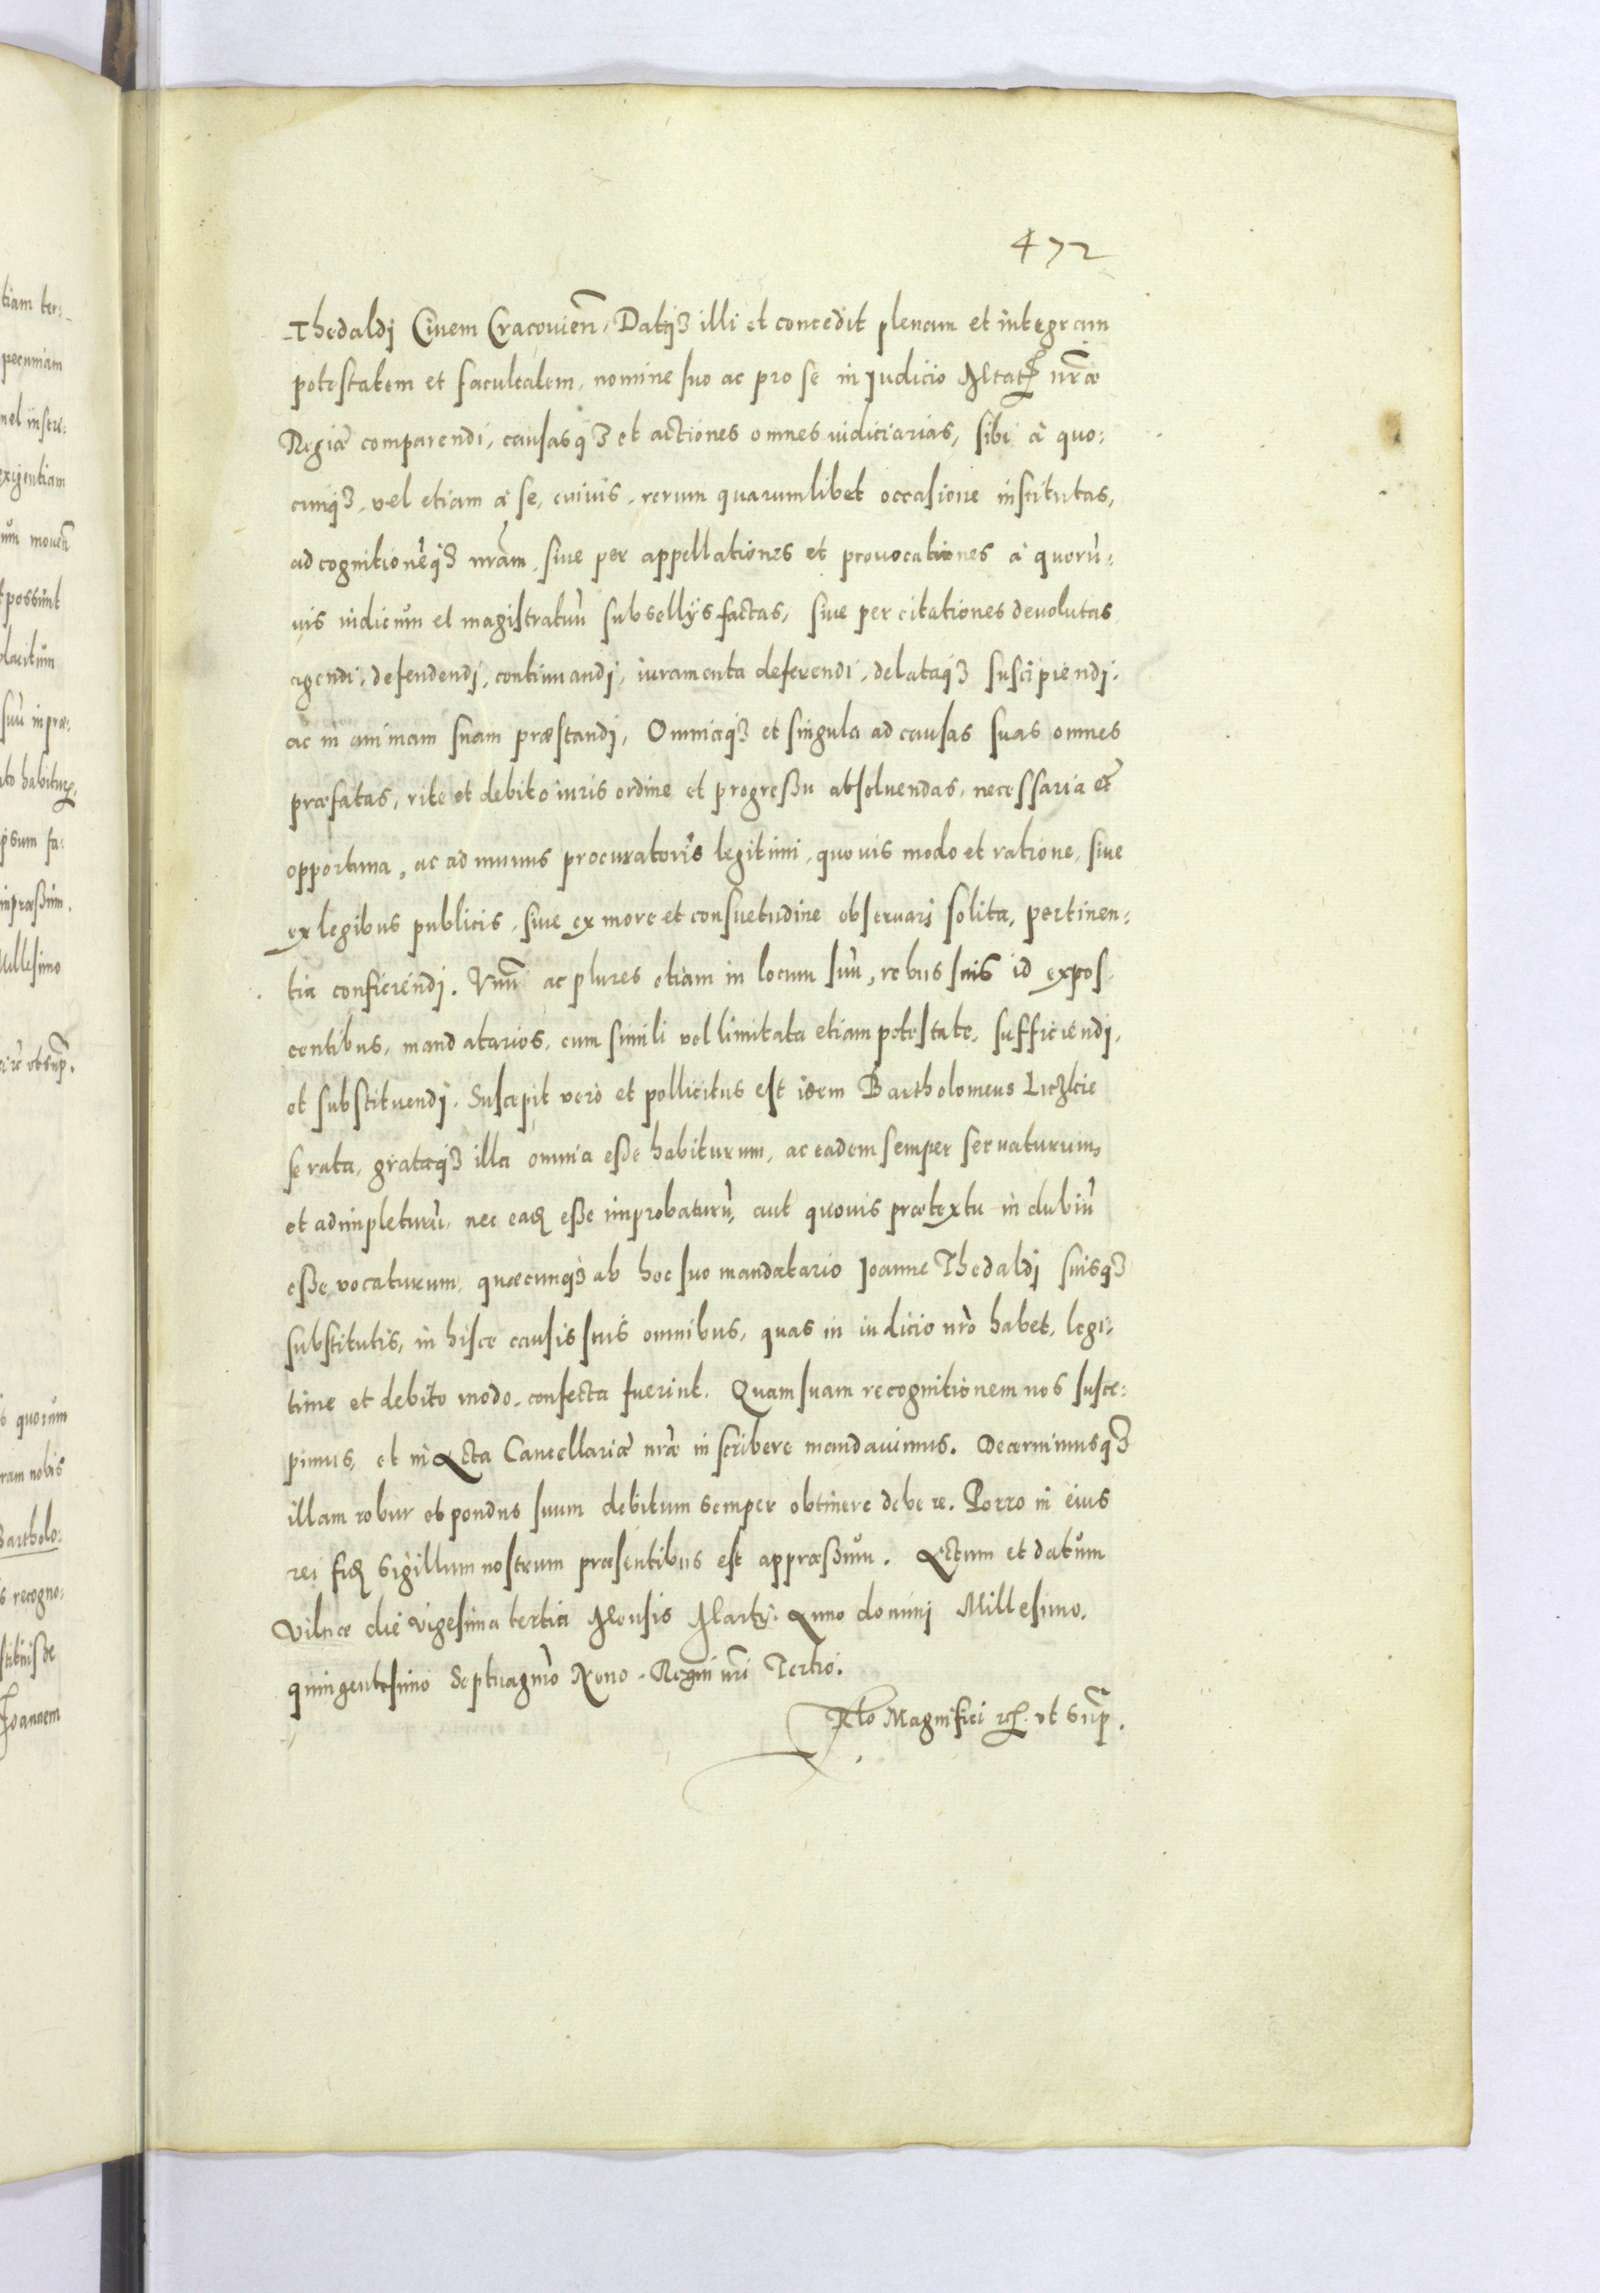 472
Thedaldj Ciuem Cracouien̄, Datq3 illi et concedit plenam et integram
potestatem et facultatem, nomine suo ac pro se in Judicio Mtat̄ nr̄æ
Regiæ comparendi, causasq3 et actiones omnes iudiciarias, sibi à quo:
cunq3, vel etiam à se, cuiuis, rerum quarumlibet occasione institutas,
ad cognitionēq3 nrām, siue per appellationes et prouocationes à quorū:
uis iudicūm et magistratuū subsellijs factas, siue per citationes deuolutas
agendi, defendendj, continuandj, iuramenta deferendi, delataq3 suscipiendj,
ac in animam suam præstandi, Omniaq3 et singula ad causas suas omnes
præfatas, rite et debito iuris ordine et progreßu absoluendas, necessaria et
opportuna, ac ad munus procuratoris legitimi, quouis modo et ratione, siue
ex legibus publicis, siue ex more et consuetudine obseruari solita, pertinen:
tia conficiendj. Vnū ac plures etiam in locum suū, rebus suis id expos:
centibus, mandatarios, cum simili vel limitata etiam potestate, sufficiendj,
et substituendj. Suscepit verò et pollicitus est idem Bartholomeus Liczkie
se rata, grataq3 illa omnia eße habiturum, ac eadem semper seruaturum,
et adimpleturū, nec eaꝶ eße improbaturū, aut quouis prætextu in dubiū
eße vocaturum, quæcunq3 ab hoc suo mandatario Joanne Thedaldj suisq3
substitutis, in hisce causis suis omnibus, quas in iudicio nrò habet, legi:
time et debito modo, confecta fuerint. Quam suam recognitionem nos susce:
pimus, et in Acta Cancellariæ nrǣ inscribere mandauimus. Decernimusq3
illam robur et pondus suum debitum semper obtinere debere. Porro in eius
rei fiꝶ sigillum nostrum præsentibus est appræßum. Actum et datūm
Vilnæ die vigesima tertia Mensis Martij Anno dominj Millesimo.
quingentesimo Septuagmò Nono. Regni nrī Tertio.
Rlo Magnifici ꝛc̄. vt sup̄.